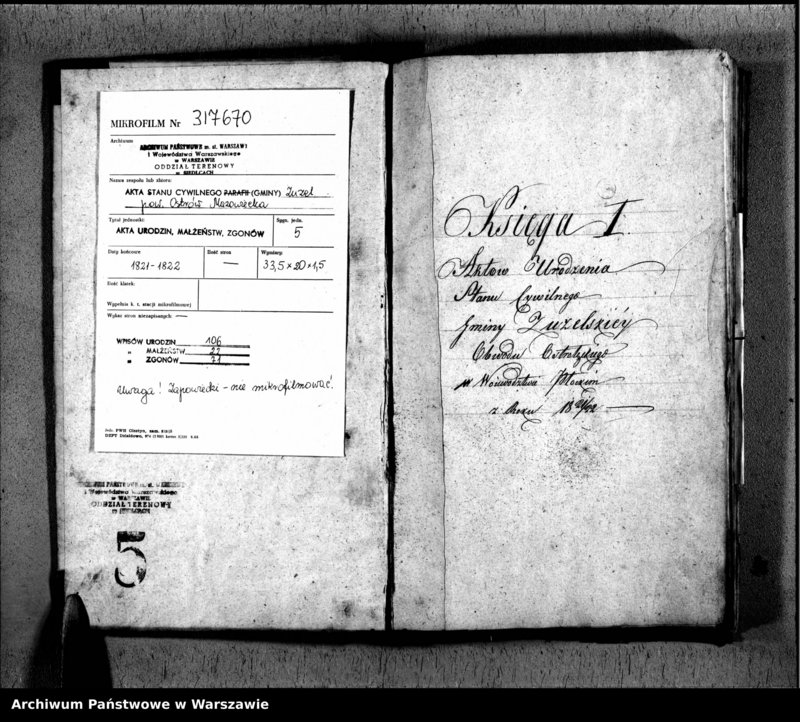 MIKROFILM Nr 317670
Archiwum
ARCHIWUM PAŃSTWOWE m. st. WARSZAWY
i Województwa Warszawskiego
w WARSZAWIE
ODDZIAŁ TERENOWY
w SIEDLCACH
Nazwa zespołu lub zbioru:
AKTA STANU CYWILNEGO PARAFII (GMINY) Zuzel
pow. Ostrów Mazowiecka
Tytuł jednostki:
AKTA URODZIN, MAŁŻEŃSTW, ZGONÓW
Sygn. jedn.
5
Daty końcowe
1821-1822
Ilość stron
—
Wymiary:
33,5 × 20 × 1,5
Ilość klatek:
Wypełnia k. r. stacji mikrofilmowej
Wykaz stron niezapisanych: —
WPISÓW URODZIN 106
" MAŁŻEŃSTW
" ZGONÓW 71
Uwaga! Zapowiedzi - nie mikrofilmować!
i Województwa Warszawskiego
w WARSZAWIE
ODDZIAŁ TERENOWY
w SIEDLCACH
5
Księga I
Aktow Urodzenia
Stanu Cywilnego
Gminy Zuzelskiéy
Obwodu
w Woiewództwie
z Roku 18 21/22
Archiwum Państwowe w Warszawie